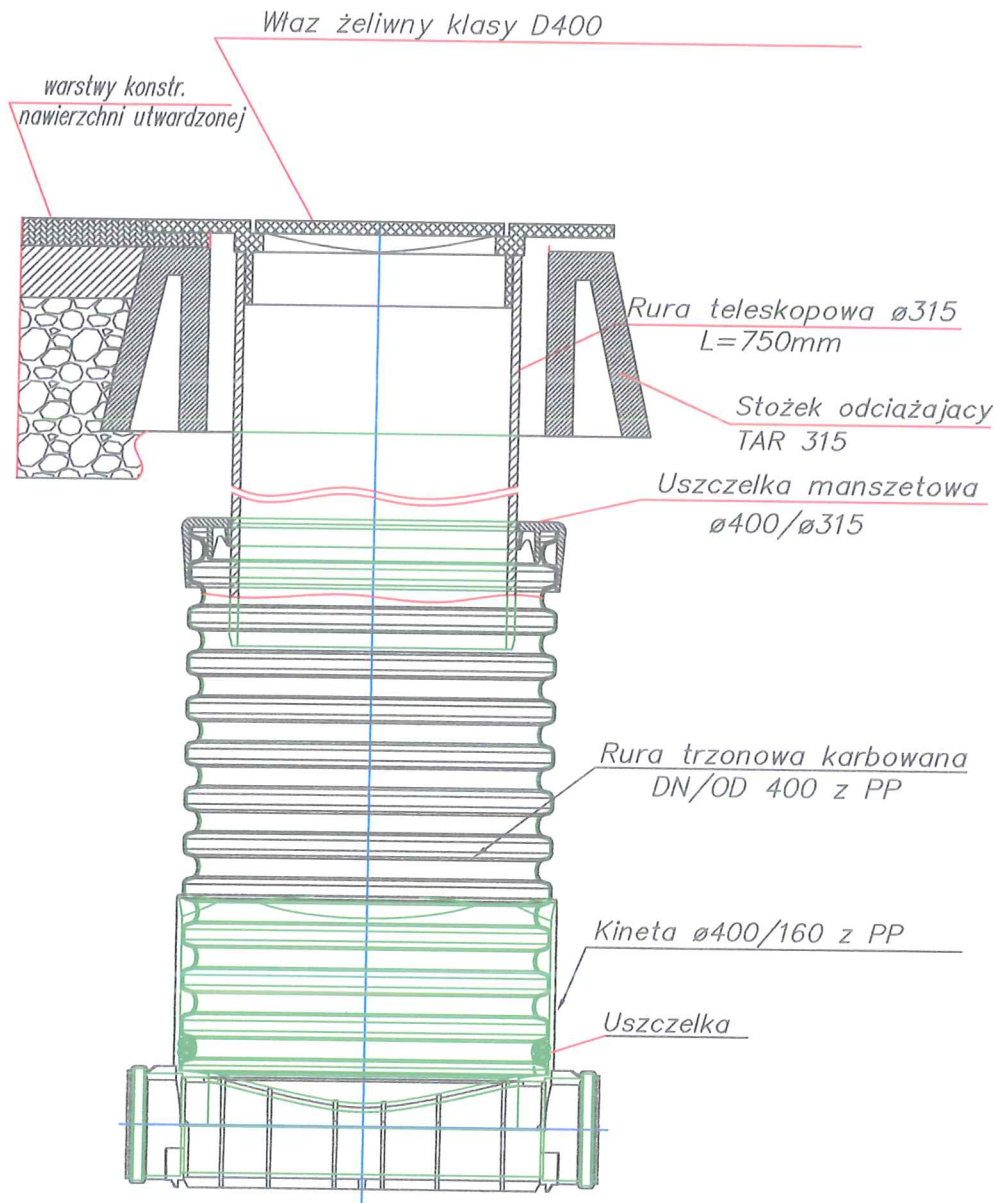 Właz żeliwny klasy D400
warstwy konstr.
nawierzchni utwardzonej
Rura teleskopowa ø315
L=750mm
Stożek odciążajacy
TAR 315
Uszczelka manszetowa
ø400/ø315
Rura trzonowa karbowana
DN/OD 400 z PP
Kineta ø400/160 z PP
Uszczelka